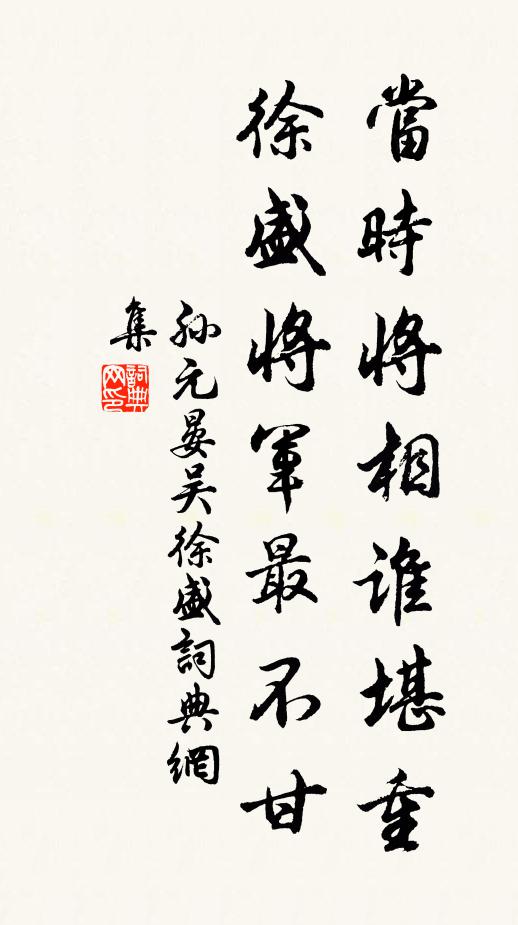 當時將相誰堪重
徐盛將軍最不甘
孙元晏吴徐盛詞典網
集
詞典
网印